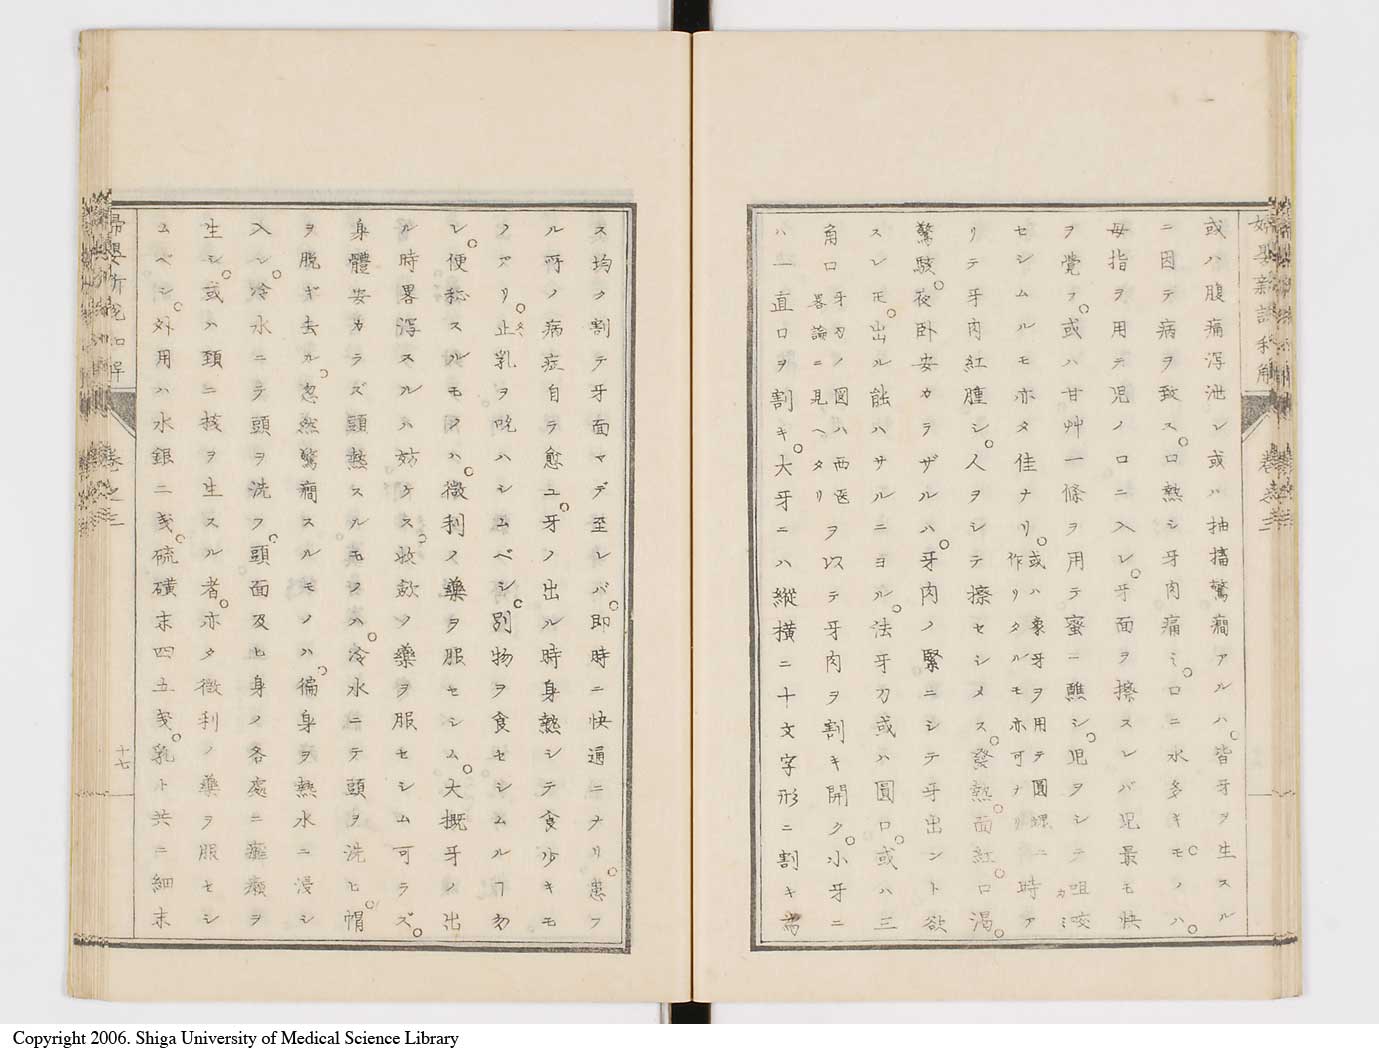 或ハ腹痛瀉泄シ或ハ抽搐驚癇アルハ。皆牙ヲ生スル
ニ因テ病ヲ致ス。口熱シ牙肉痛ミ。口ニ水多キモノハ。
母指ヲ用テ児ノ口ニ入レ。牙面ヲ擦スレバ児最モ快
ヲ覚フ。或ハ甘艸一條ヲ用テ蜜ニ蘸シ。児ヲシテ咀咬カミ
セシムルモ亦タ佳ナリ。或ハ象牙ヲ用テ圓環ニ作リタルモ亦可ナリ時ア
リテ牙肉紅腫シ。人ヲシテ擦セシメス。發熱。面紅。口渇。
驚駭。夜卧安カラザルハ。牙肉ノ緊ニシテ牙出ント欲
スレモ。出ル能ハサルニヨル。法牙刀或ハ圓口。或ハ三
角口牙刀ノ図ハ西医畧論ニ見ヘタリヲ以テ牙肉ヲ割キ開ク。小牙ニ
ハ一直口ヲ割キ。大牙ニハ縦横ニ十文字形ニ割キ為
婦嬰新説和解 巻之三
ス均ク割テ牙面マデ至レバ。即時ニ快通ニナリ。患フ
ル所ノ病症自ラ愈ユ。牙ノ出ル時身熱シテ食少キモ
ノアリ。止タ乳ヲ吃ハシムベシ。別物ヲ食セシムルヿ勿
レ。便秘スルモノハ。微利ノ藥ヲ服セシム。大概牙ノ出
ル時畧瀉スルハ妨ケス。收歛ノ藥ヲ服セシム可ラズ。
身體安カラズ頭熱スルモノハ。冷水ニテ頭ヲ洗ヒ。帽
ヲ脱ギ去ル。忽然驚癇スルモノハ。徧身ヲ熱水ニ浸シ
入レ。冷水ニテ頭ヲ洗フ。頭面及ヒ身ノ各處ニ瘡癩ヲ
生シ。或ハ頚ニ核ヲ生スル者。亦タ微利ノ藥ヲ服セシ
ムベシ。外用ハ水銀二戔。硫磺末四五戔。乳ト共ニ細末
巻之三
十七